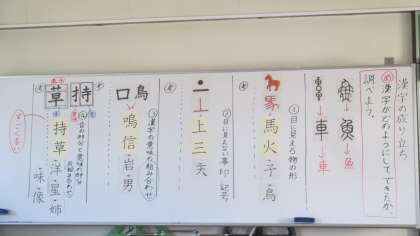 漢字の成り立ち
め 漢字がどのようにしてできたか、
調べよう。
魚
魚
車
車
① 目に見える物の形
馬
馬火子鳥
② 目に見えない事 印や記号
上
上三天
③ 漢字の意味の組み合わせ
口鳥
鳴信岩男
④ 音の部分と意味の部分
の組み合わせ
持
草
持草洋星姉
味像